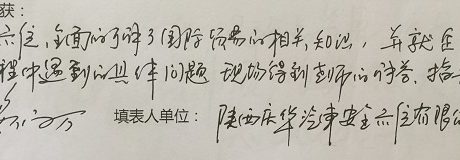 获：
系统、全面的了解了国际贸易的相关知识，并就在
程中遇到的具体问题 现场得到老师的解答、指
填表人单位： 陕西庆华汽车安全系统有限公